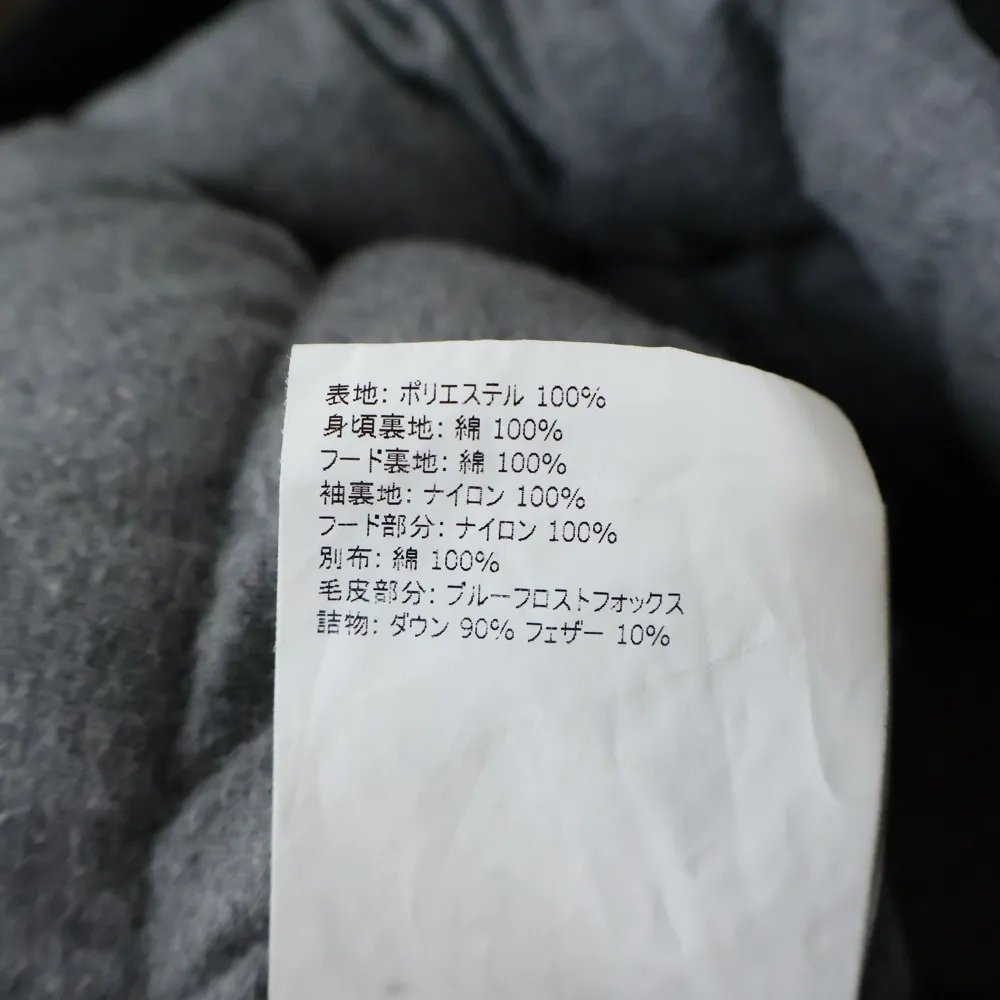 表地: ポリエステル 100%
身頃裏地: 綿 100%
フード裏地: 綿 100%
袖裏地: ナイロン 100%
フード部分: ナイロン 100%
別布: 綿 100%
毛皮部分: ブルーフロストフォックス
詰物: ダウン 90% フェザー 10%